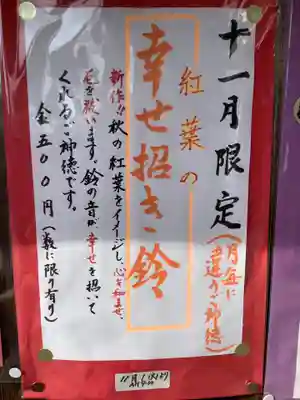 十一月限定
(月毎に違うご神徳)
紅葉の
幸せ招き鈴
新作!!秋の紅葉をイメージし、心を和ませ、
厄を祓います。鈴の音が、幸せを招いて
くれるご神徳です。
金五〇〇円(数に限り有り)